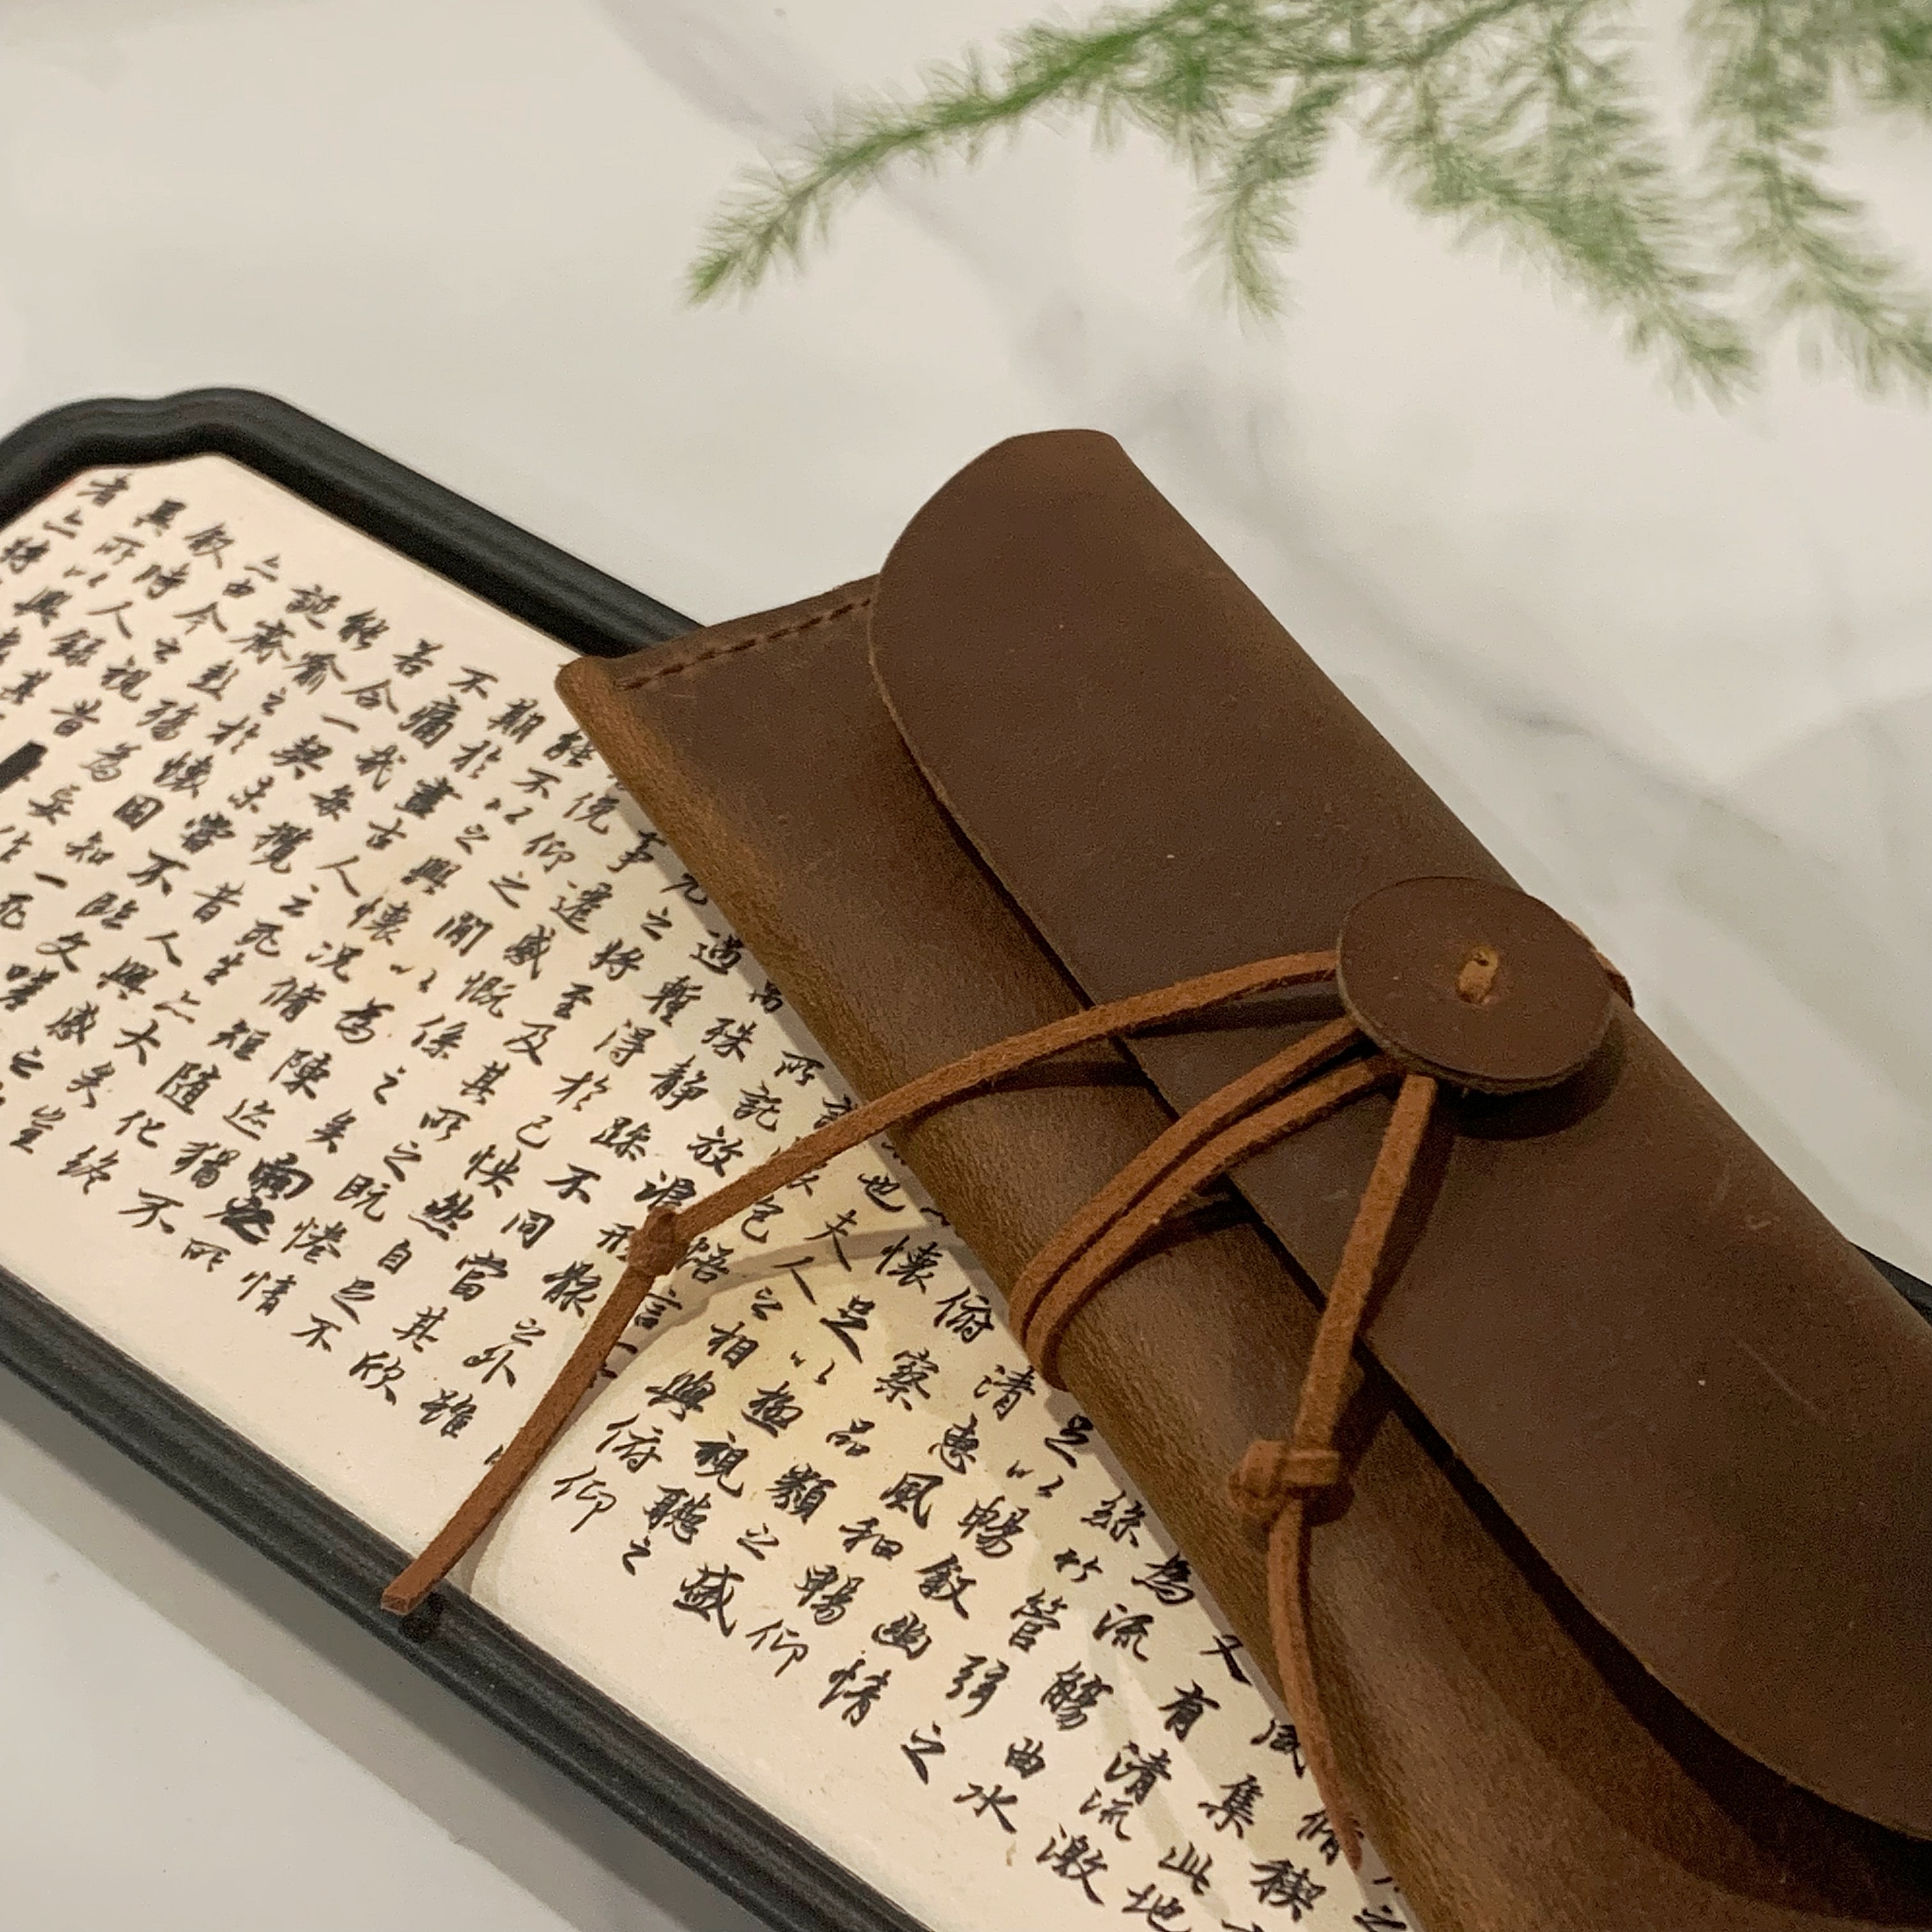 脩稧
集此地
又有清流激
為流觴曲水
絲竹管弦之
足以暢敘幽情
清惠風和暢仰
俯察品類之盛
懷足以極視聽之
也夫人之相與俯仰
抱悟言一
所託放浪形骸之外雖
萬殊靜躁不同當其欣
遇暫得於己快然自足不
之將至及其所之既惓情
事遷感慨係之矣向之所
俛仰之閒以為陳迹猶不
能不以之興懷況脩短隨化終
期於盡古人云死生亦大矣豈
不痛哉每攬昔人興感之
若合一契未嘗不臨文嗟
能喻之於懷固知一死
誕齊彭殤為妄作
亦由今之視昔
敘時人錄其
異所以興
者亦將